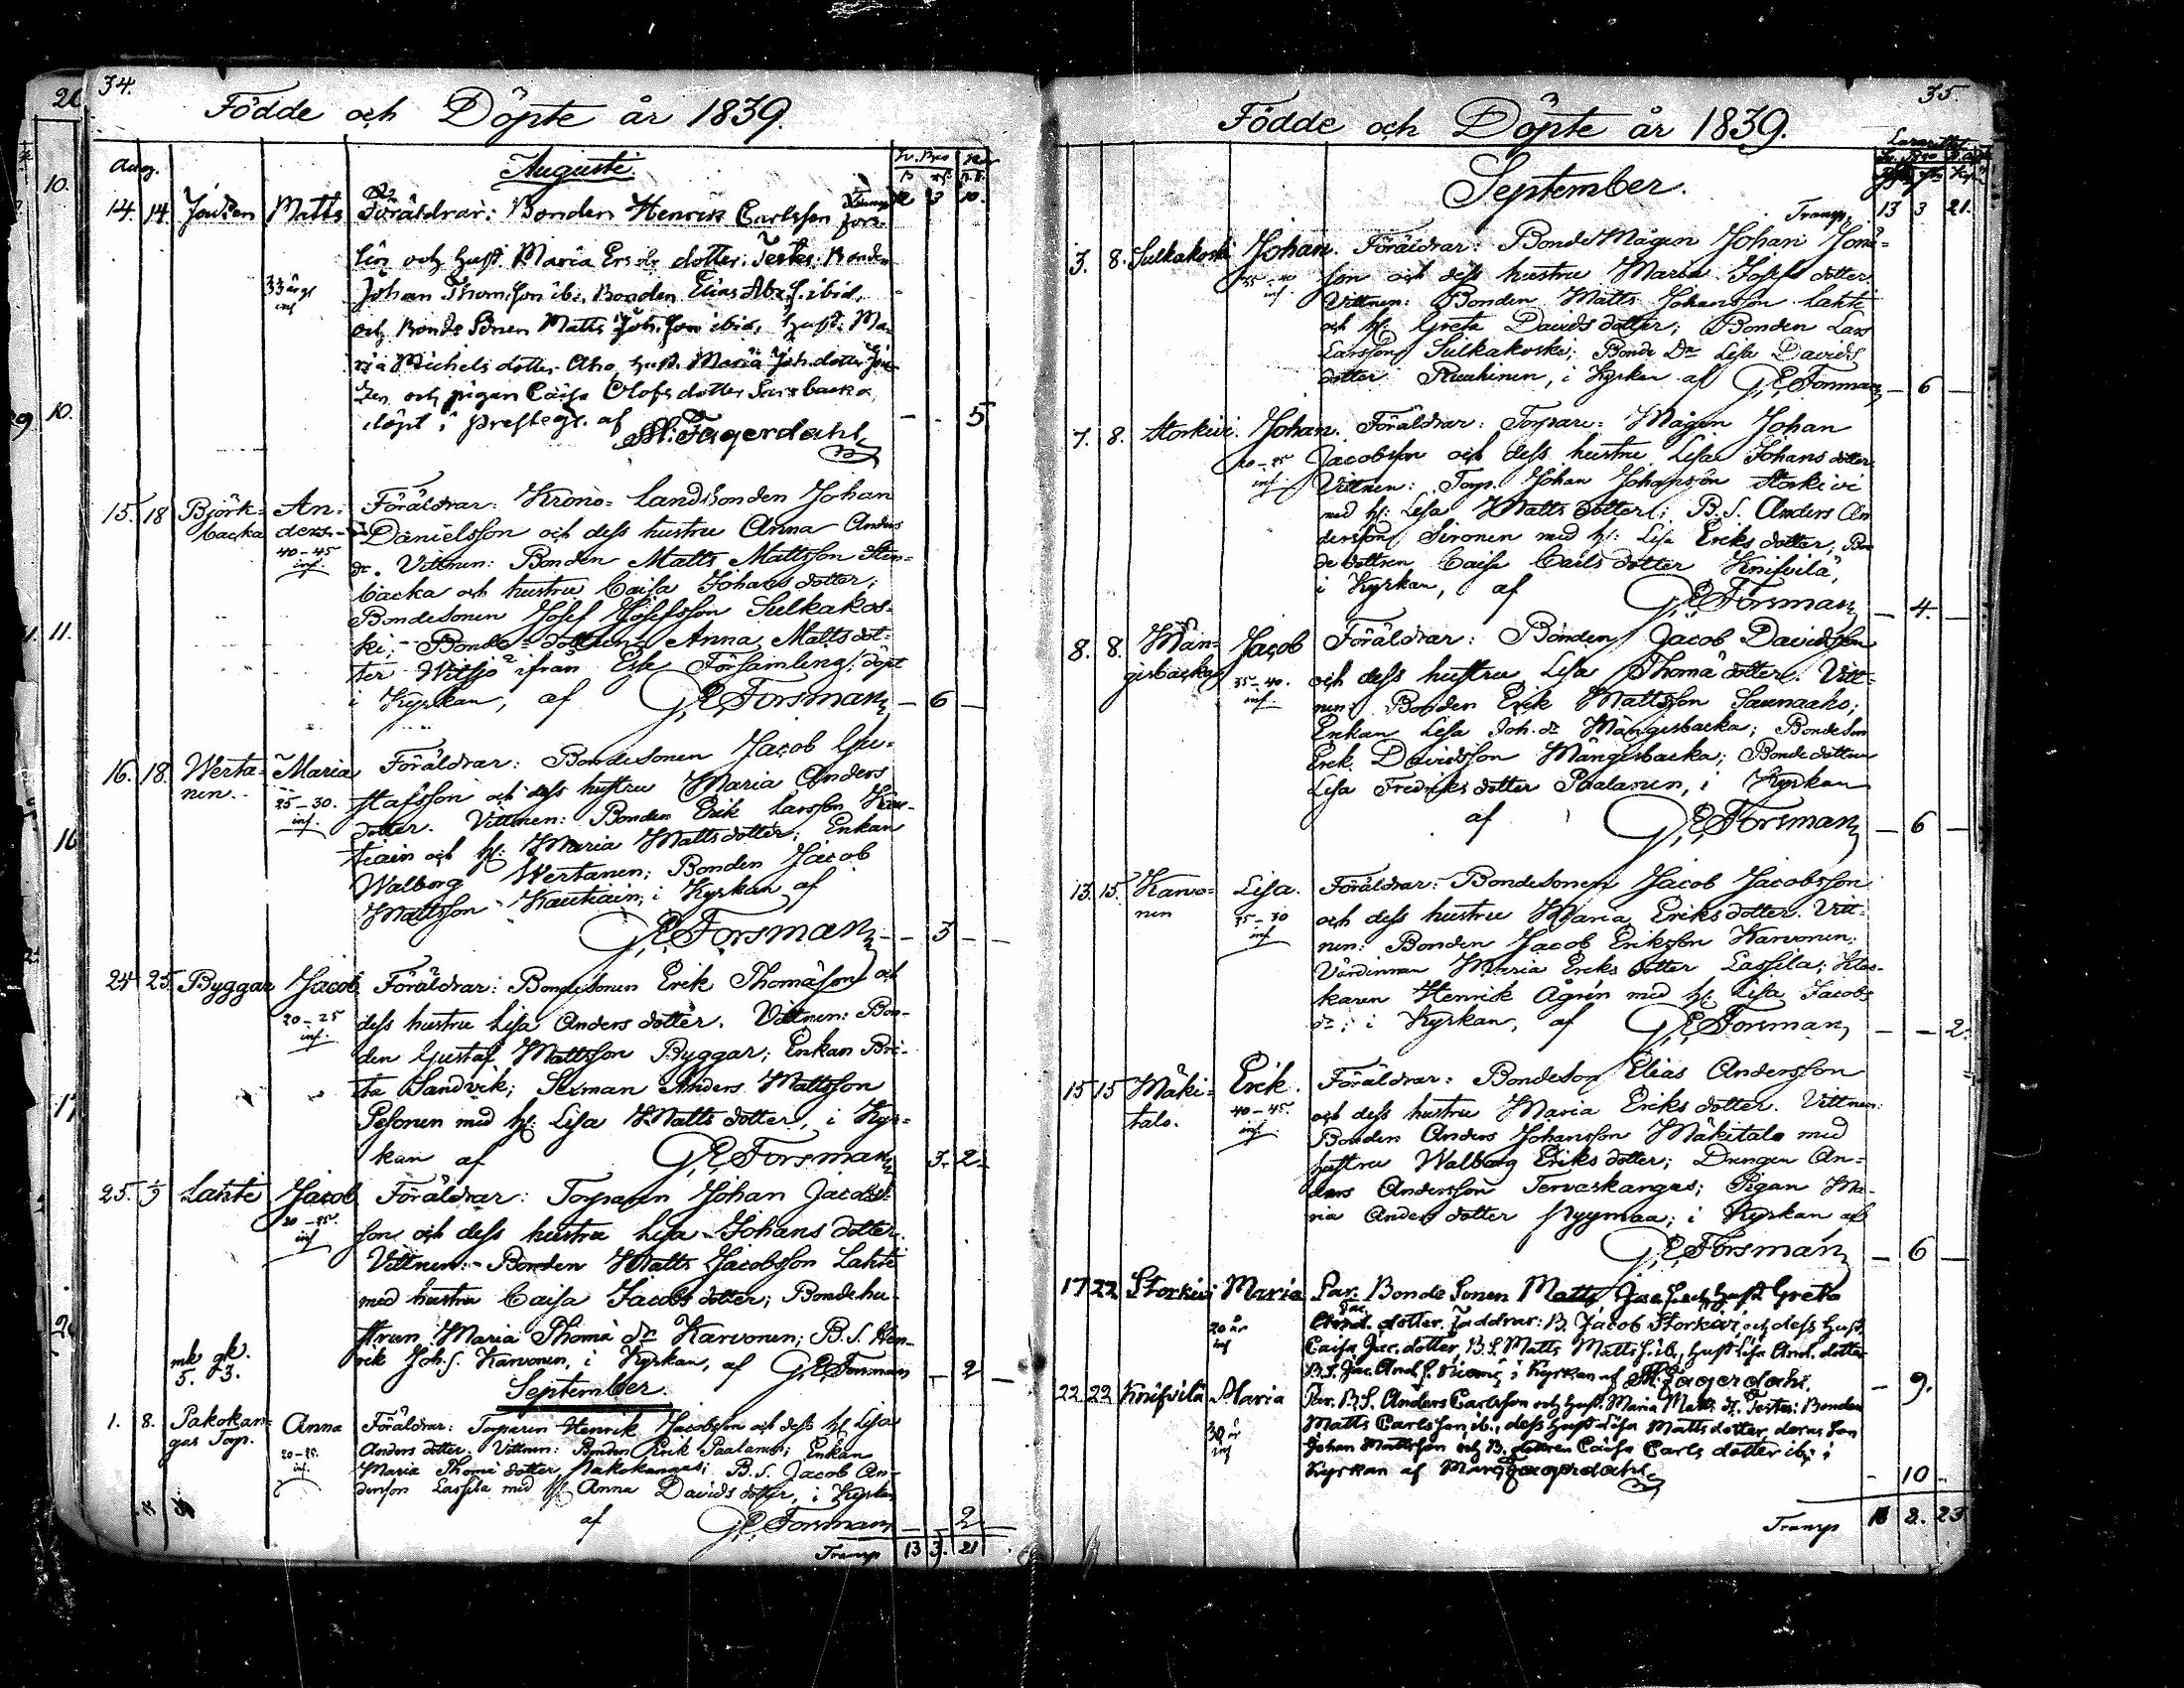 34.
Födde och Döpte år 1839.
Aug.
Augusti.
14. 14. Matts Föräldrar: Bonden Henrik Carlsson
och hust. Maria Ers dr dotter. Testes: Bonden
33 årgl Johan Thom.son ib., Bonden Elias Abr.s. ibid.
inf och Bonde Sonen Matts Joh.son ibid, hust. Ma-
ria Michels dotter Aho, hust. Maria Joh. dotter
och pigan Caisa Olofs dotter
döpt i prestegl. af M: Fagerdahl 5
15. 18 Björk- An- Föräldrar: Krono-Landbonden Johan
backa ders. Danielsson och dess hustru Anna Anders
40-45 dr. Vittnen: Bonden Matts Mattsson Sten-
inf. backa och hustru Caisa Johans dotter;
Bondesonen Josef Josefsson Sulkakos-
ki; Bonde-dottren Anna Matts dot-
ter från Församling; döpt
i Kyrkan, af G. E. Forsman – 6 –
16. 18. Werta- Maria Föräldrar: Bondesonen Jacob Gu-
nen. 25-30. stafsson och dess hustru Maria Anders
inf. dotter. Vittnen: Bonden Erik Larsson Kau-
tiain och h: Maria Matts dotter; Enkan
Walborg Wertanen; Bonden Jacob
Mattsson Kautiain, i Kyrkan af
G. E. Forsman – 3 –
24 25. Byggar Jacob Föräldrar: Bondesonen Erik Thomasson och
20-25 dess hustru Lisa Anders dotter. Vittnen: Bon-
inf. den Gustaf Mattsson Byggar; Enkan Bri-
ta Sandvik; Sexman Anders Mattsson
Pesonen med h: Lisa Matts dotter, i Kyr-
kan af G. E. Forsman 3. 2.
25. 1/9 Lahti Jacob Föräldrar: Torparen Johan Jacobs-
20-25. son och dess hustru Lisa Johans dotter.
inf Vittnen: Bonden Matts Jacobsson Lahti
med hustru Caisa Jacobs dotter; Bondehu-
strun Maria Thoma dr Karvonen; B. S. Hen-
mk gk. rik Joh. s. Karvonen, i Kyrkan, af G. E. Forsman – 2 –
5. 3.
September.
1. 8. Pakokan- Anna Föräldrar: Torparen Henrik Jacobsson och dess h: Lisa
gas Torp. 20-25. Anders dotter. Vittnen: Bonden Erik Paalanen; Enkan
inf. Maria Thoma dotter Pakokangas; B. S. Jacob An-
dersson Lassila med h: Anna Davids dotter, i Kyrkan
af G. E. Forsman 2
Transp 13 3. 21
35.
Födde och Döpte år 1839.
Lazarettet
September.
Transp. 13 3 21.
3. 8. Sulkakoski Johan. Föräldrar: BondeMågen Johan
inf. son och dess hustru Maria Josefs dotter.
Vittnen: Bonden Matts Johansson Lahti
och h: Greta Davids dotter; Bonden Lars
Larsson Sulkakoski; Bonde Dr Lisa Davids
dotter Ruuhinen, i Kyrkan af G. E. Forsman – 6 –
7. 8. Storkivi. Johan. Föräldrar: Torpare-Mågen Johan
20-25 Jacobsson och dess hustru Lisa Johans dotter.
inf. Vittnen: Torp. Johan Johansson Storkivi
med h: Lisa Matts dotter; B. S. Anders An
dersson Sironen med h: Lisa Eriks dotter; Bon
de dottren Caisa Carls dotter Knifvilä,
i Kyrkan, af G. E. Forsman – 4. –
8. 8. Män- Jacob Föräldrar: Bonden Jacob Davidsson
gisbacka 35-40. och dess hustru Lisa Thoma dotter. Vitt-
inf. nen: Bonden Erik Mattsson Saunaaho;
Enkan Lisa Joh. dr Mängisbacka; Bondeson
Erik Davidsson Mängisbacka; Bondedottren
Lisa Fredriks dotter Paalanen, i Kyrkan
af G. E. Forsman – 6 –
13. 15. Karvo- Lisa. Föräldrar: Bondesonen Jacob Jacobsson
nen 25-30 och dess hustru Maria Eriks dotter. Vitt-
inf nen: Bonden Jacob Eriksson Karvonen;
Värdinnan Maria Eriks dotter Lassila; Kloc-
karen Henrik Ågrén med h: Lisa Jacobs
dr; i Kyrkan, af G. E. Forsman – – 2.
15 15 Mäki- Erik. Föräldrar: Bondeson Elias Andersson
talo. 40-45. och dess hustru Maria Eriks dotter. Vittnen:
inf. Bonden Anders Johansson Mäkitalo med
hustru Walborg Eriks dotter; Drengen An-
ders Andersson Tervaskangas; Pigan Ma-
ria Anders dotter Nyymaa; i Kyrkan af
G. E. Forsman – 6 –
17 22 Storkivi Maria Par. Bonde Sonen Matts Jac.s. och hust Greta
20 år Jac. dotter. Faddrar: B. Jacob Storkivi och dess hust
inf Caisa Jac. dotter, B. S. Matts Matts s. ib., hust Lisa And. dotter
B. S. Jac. And. s. i Kyrkan af M. Fagerdahl. – 9.
22. 22 Knifvilä Maria Par. B. S. Anders Carlsson och hust. Maria Matts dr. Testes: Bonden
30 år Matts Carlsson ib., dess hust Lisa Matts dotter deras son
inf Johan Mattsson och B. dottren Caisa Carls dotter ib; i
Kyrkan af Fagerdahl – 10 –
Transp 8. 23